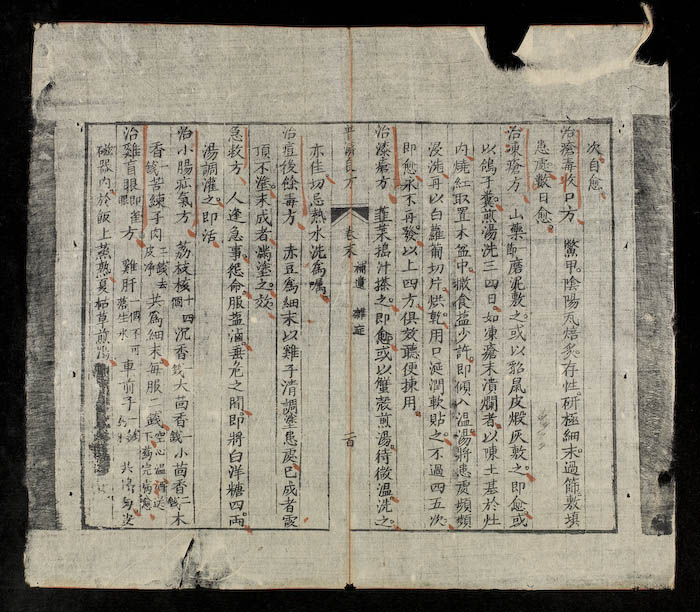 次自愈
治瘡毒收口方 鱉甲陰陽瓦焙炙存性研極細末過篩敷填
患處數日愈
治凍瘡方 山藥即磨泥敷之或以貂鼠皮煅灰敷之即愈或
以鴿子糞煎湯洗三四日如凍瘡末潰爛者以陳土基於灶
内燒紅取置木盆中撒食盐少許即傾入温湯將患處頻頻
浸洗再以白蘿葡切片烘乾用口涎潤軟貼之不過四五次
即愈永不再發以上四方俱效聽便揀用
治漆瘡方 韮菜搗汁搽之即愈或以蟹殼煎湯待微温洗之
普濟良方 卷末 補遺 雜症
亦佳切忌熱水洗爲囑
治痘後餘毒方 赤豆爲細末以雞子清調塗患處已成者露
頂不塗末成者滿塗之效
急救方 人逢急事怨命服盐滷垂危之間即將白洋糖四兩
湯調灌之即活
治小腸疝氣方 荔枝核十四個沉香一錢大茴香一錢小茴香二錢木
香一錢苦練子肉三錢去皮净共爲細末每服二錢空心温酒送下
治雞盲眼即雀方 雞肝一個不可落生水車前子
磁器内於飯上蒸熟夏枯草煎湯